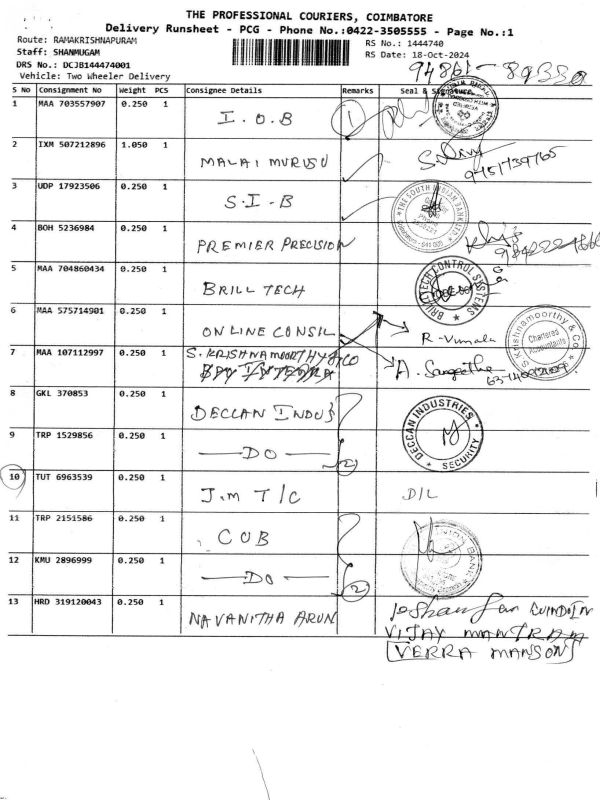 THE PROFESSIONAL COURIERS, COIMBATORE
Delivery Runsheet - PCG - Phone No.:0422-3505555 - Page No.:1
Route: RAMAKRISHNAPURAM
RS No.: 1444740
Staff: SHANMUGAM
RS Date: 18-Oct-2024
DRS No.: DCJB144474001
Vehicle: Two Wheeler Delivery
S No Consignment No Weight PCS Consignee Details Remarks Seal &
1 MAA 703557907 0.250 1 I.O.B 1
2 IXM 507212896 1.050 1 MALAI MURUSU
3 UDP 17923506 0.250 1 S.I-B
THE SOUTH INDIAN BANK LTD.
4 BOH 5236984 0.250 1 PREMIER PRECISION
5 MAA 704860434 0.250 1 BRILL TECH
BRILL TECH CONTROL SYSTEMS
6 MAA 575714901 0.250 1 ONLINE CONSIL R-Vimala
S. Krishnamoorthy & Co
Chartered Accountants
7 MAA 107112997 0.250 1 S. KRISHNAMOORTHY & CO
A. Sangeetha
8 GKL 370853 0.250 1 DECCAN INDUS
DECCAN INDUSTRIES
SECURITY
9 TRP 1529856 0.250 1 DO 2
10 TUT 6963539 0.250 1 J.M T/C D/L
11 TRP 2151586 0.250 1 CUB
12 KMU 2896999 0.250 1 DO 2
13 HRD 319120043 0.250 1 NAVANITHA ARUN
VIJAY MANTRAM
VERRA MANSON